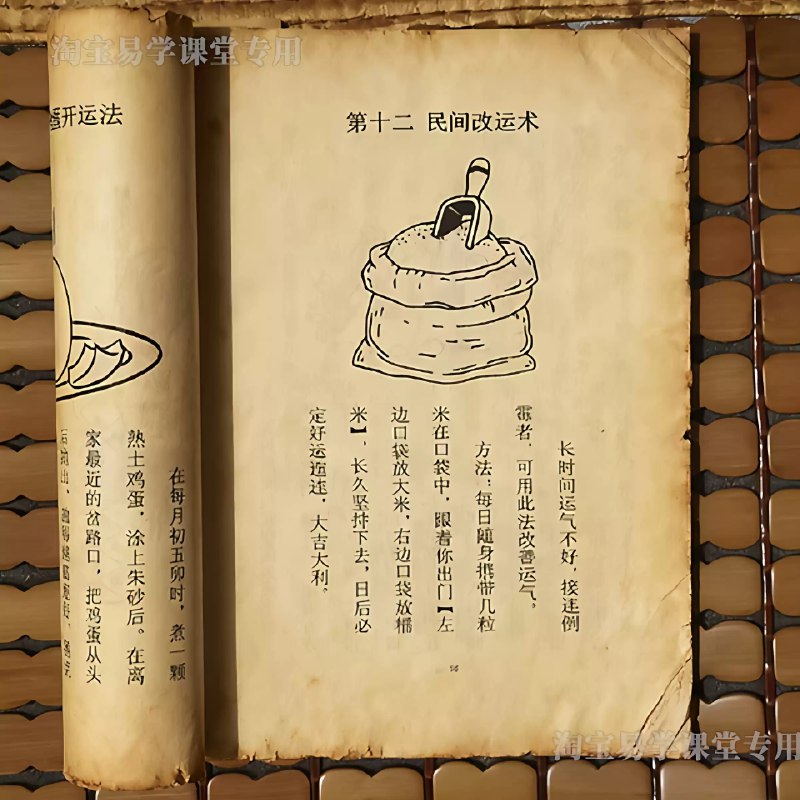 淘宝易学课堂专用
第十二 民间改运术
长时间运气不好，接连倒
霉者，可用此法改善运气。
方法：每日随身携带几粒
米在口袋中，跟着你出门【左
边口袋放大米，右边口袋放糯
米】，长久坚持下去，日后必
定好运连连，大吉大利。
蛋开运法
在每月初五卯时，煮一颗
熟土鸡蛋，涂上朱砂后。在离
家最近的岔路口，把鸡蛋从头
淘宝易学课堂专用